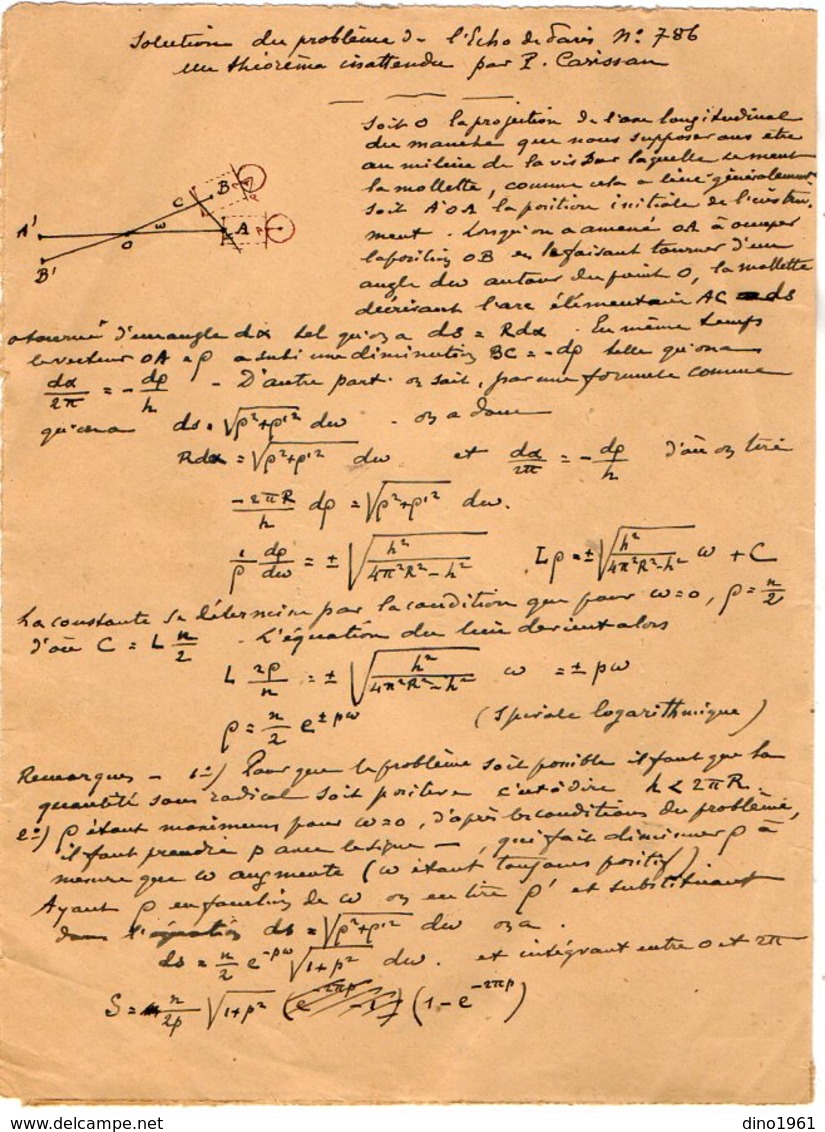 Solution du problème de l'Echo de Paris N° 786
un théorème inattendu par P. Carissan
Soit O la projection de l'axe longitudinal
du manche que nous supposerons être
au milieu de la vis sur laquelle se meut
la mollette, comme cela a lieu généralement
soit A'OA la position initiale de l'instru-
ment. Lorsqu'on a amené OA à occuper
la position OB en le faisant tourner d'un
angle dω autour du point O, la mollette
décrivant l'arc élémentaire AC = ds
A'
B'
O
ω
C
B
A
a tourné d'un angle dα tel qu'on a ds = Rdα. En même temps
le vecteur OA = ρ a subi une diminution BC = -dρ telle qu'on a
dα/2π = - dρ/h - D'autre part on sait, par une formule connue
qu'on a ds = √(ρ²+ρ'²) dω . on a donc
Rdα = √(ρ²+ρ'²) dω et dα/2π = - dρ/h d'où on tire
-2πR/h dρ = √(ρ²+ρ'²) dω.
1/ρ dρ/dω = ± √(h²/(4π²R²-h²)) Lρ = ± √(h²/(4π²R²-h²)) ω + C
La constante se détermine par la condition que pour ω=0, ρ = n/2
d'où C = L n/2 . L'équation du lieu devient alors
L 2ρ/n = ± √(h²/(4π²R²-h²)) ω = ± pω
ρ = n/2 e^(±pω) (Spirale logarithmique)
Remarques - 1°) Pour que le problème soit possible il faut que la
quantité sous radical soit positive c'est à dire h < 2πR.
2°) ρ étant maximum pour ω=0, d'après les conditions du problème,
il faut prendre p avec le signe -, qui fait diminuer ρ à
mesure que ω augmente (ω étant toujours positif)
Ayant ρ en fonction de ω on en tire ρ' et substituant
dans l'équation ds = √(ρ²+ρ'²) dω on a.
ds = n/2 e^(-pω) √(1+p²) dω. et intégrant entre 0 et 2π
S = n/2p √(1+p²) (e^(-2πp) - 1) (1-e^(-2πp))
dino1961